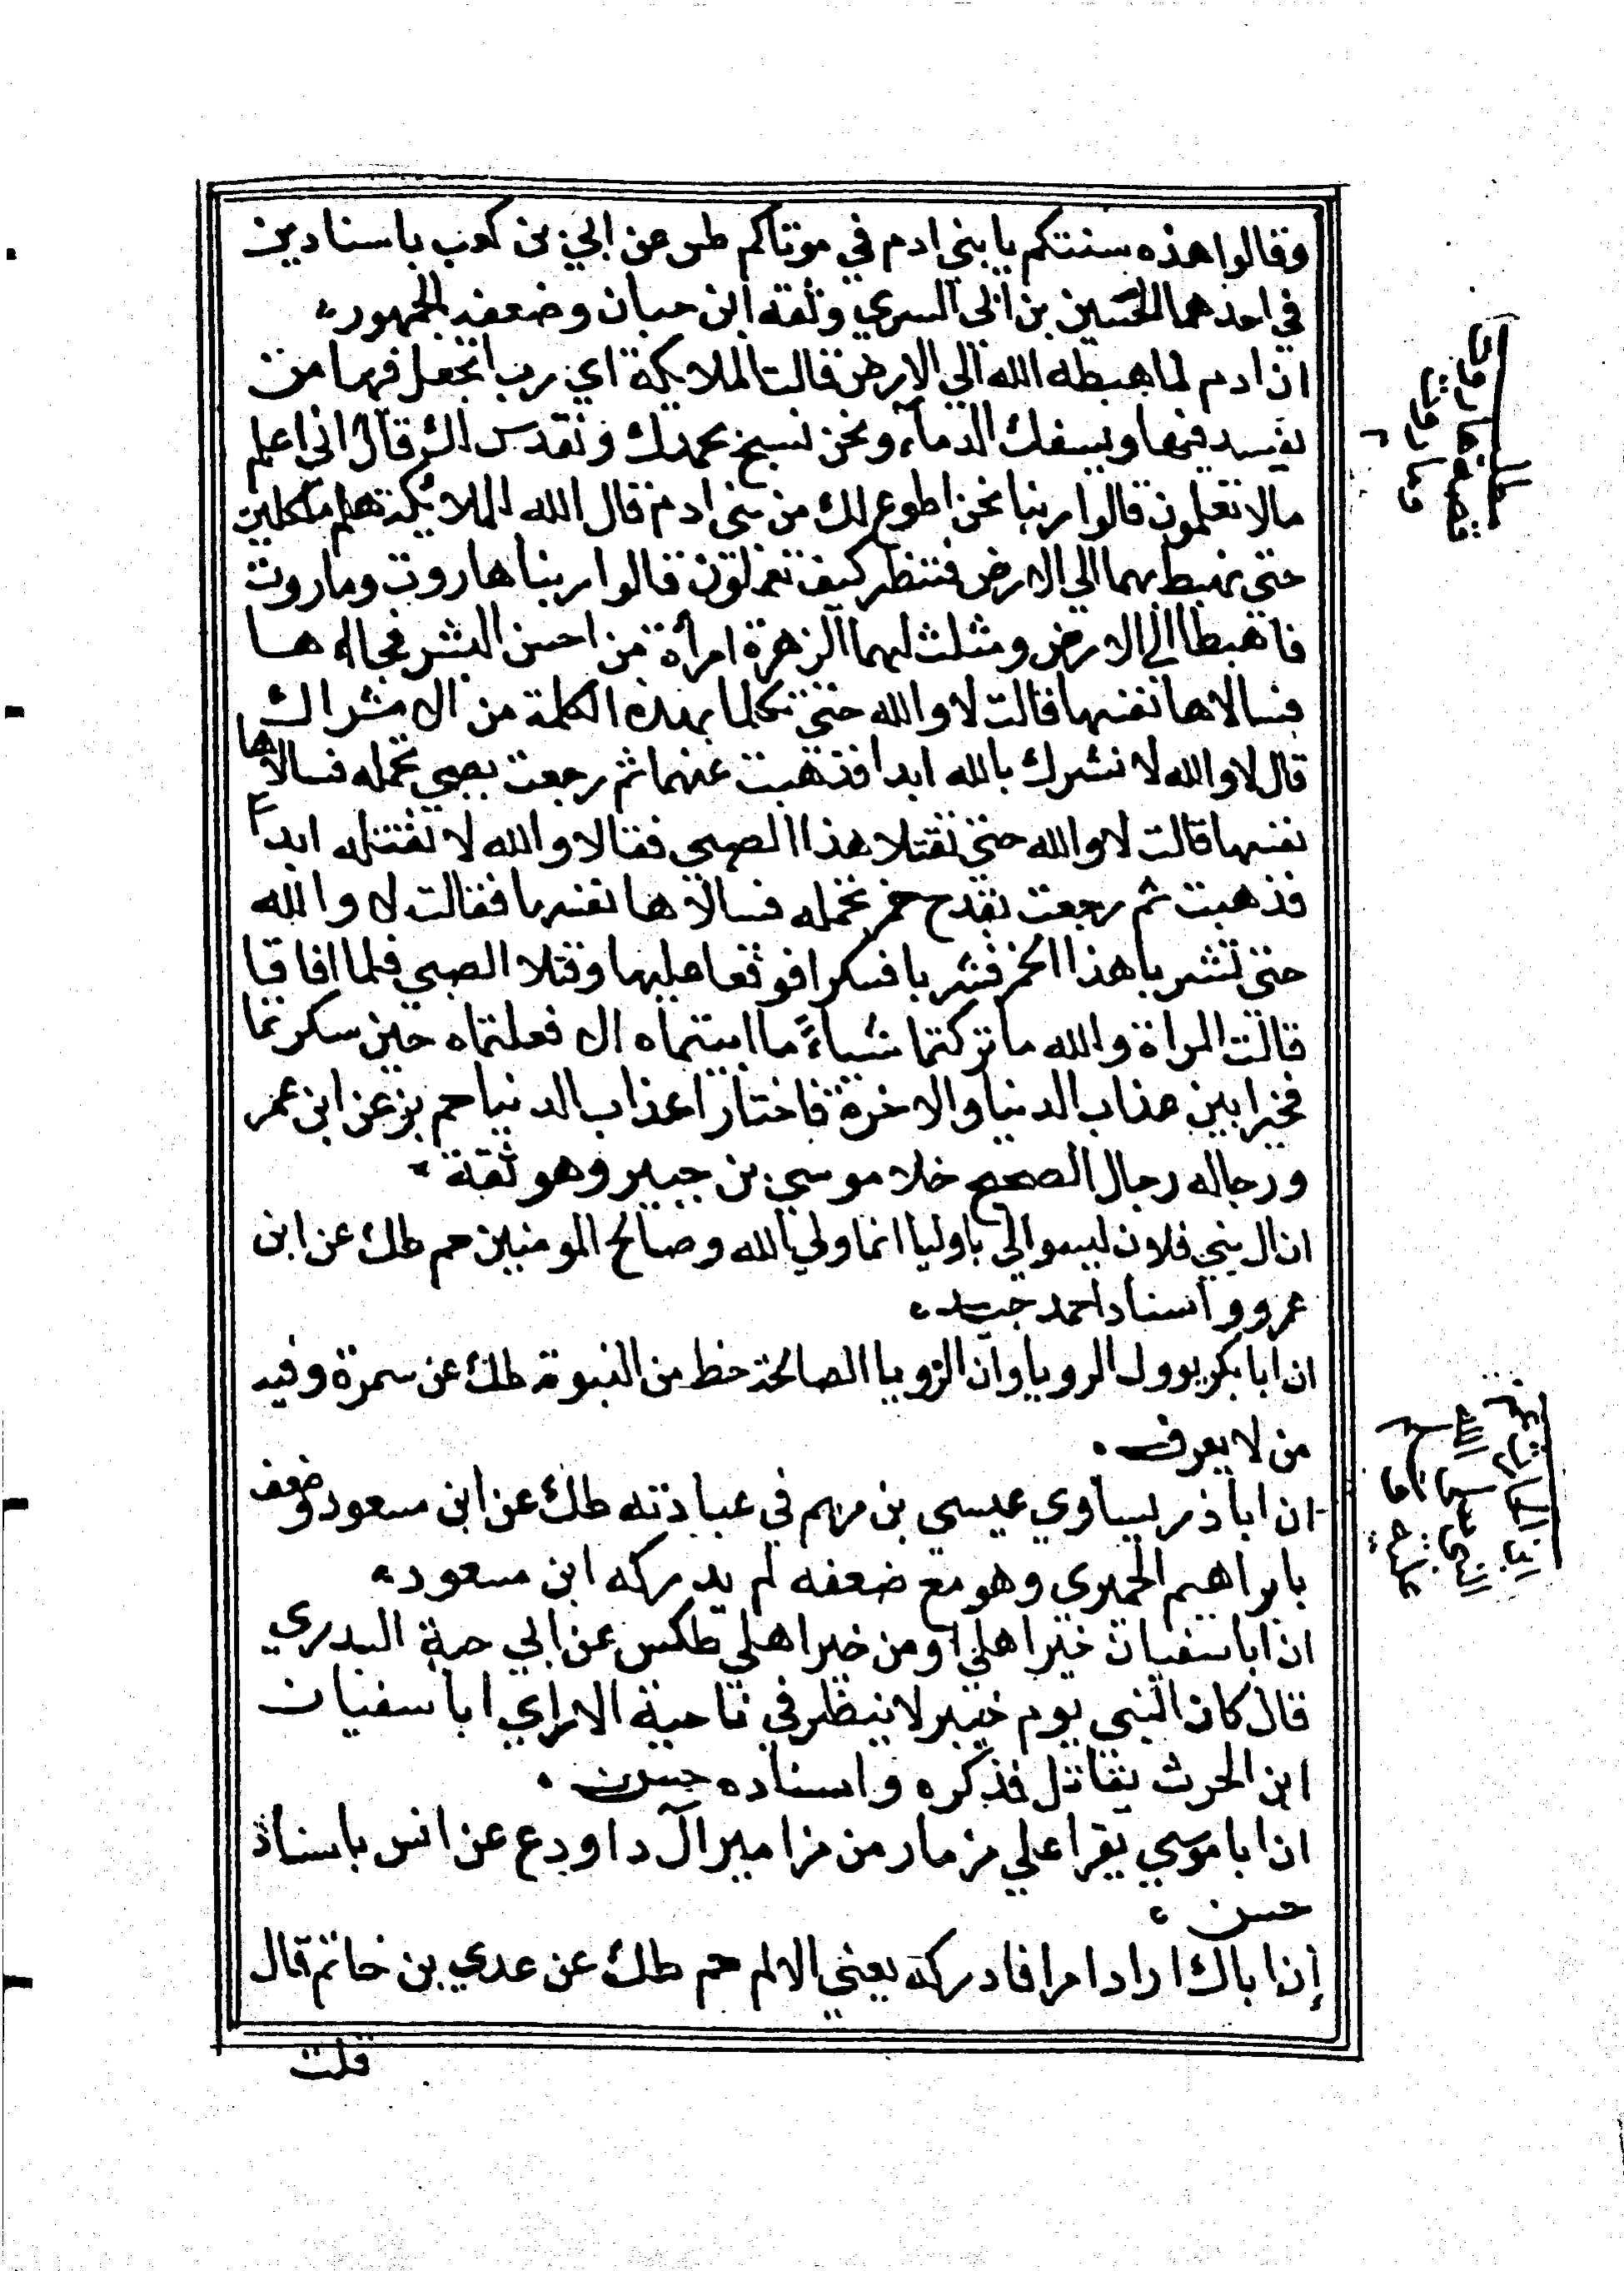 وقالوا هذه سنتكم يا بني ادم في موتاكم طس عن ابي بن كعب باسنادين
في احدهما الحسين بن ابي السري وثقه ابن حبان وضعفه الجمهور
ان ادم لما هبطه الله الي الارض قالت الملايكة اي رب اتجعل فيها من
يفسد فيها ويسفك الدماء ونحن نسبح بحمدك ونقدس لك قال اني اعلم
مالا تعلمون قالوا ربنا نحن اطوع لك من بني ادم قال الله للملائكة هلم ملكين
حتي نهبط بهما الي الارض فننظر كيف تعملون قالوا ربنا هاروت وماروت
فاهبطا الي الارض ومثلث لهما الزهرة امرأة من احسن البشر فجاءها
فسالاها نفسها فقالت لا والله حتي تكلما بهذه الكلمة من الاشراك
قال لا والله لا نشرك بالله ابدا فذهبت عنهما ثم رجعت بصبي تحمله فسالاها
نفسها قالت لا والله حتي تقتلا هذا الصبي فقالا والله لا نقتله ابدا
فذهبت ثم رجعت بقدح خمر تحمله فسالاها نفسها فقالت لا والله
حتي تشربا هذا الخمر فشربا فسكرا فوقعا عليها وقتلا الصبي فلما افاقا
قالت المراة والله ما تركتما شيأً ما ابيتماه الا فعلتماه حين سكرتما
فخيرا بين عذاب الدنيا والاخرة فاختارا عذاب الدنيا حم بز عن ابن عمر
ورجاله رجال الصحيح خلا موسي بن جبير وهو ثقة
ان ال بني فلان ليسوا لي باوليا انما ولي الله وصالح المومنين حم طك عن ابن
عمرو واسناد احمد جيد
ان ابا بكر يوول الرويا وان الرويا الصالحة حظ من النبوة طك عن سمرة وفيه
من لا يعرف
ان ابا ذر ليساوي عيسي بن مريم في عبادته طك عن ابن مسعود وضعف
بابراهيم الحميري وهو مع ضعفه لم يدركه ابن مسعود
ان ابا سفيان خير اهلي او من خير اهلي طكس عن ابي حبة البدري
قال كان النبي يوم خيبر لا ينظر في ناحية الا راي ابا سفيان
ابن الحرث يقاتل فذكره واسناده حسن
ان ابا موسي يقرا علي مزمار من مزامير آل داود ع عن انس باسناد
حسن
إن اباك اراد امرا فادركه يعني الالم حم طك عن عدي بن حاتم قال
قلت
مطلب
قصة هاروت
وماروت